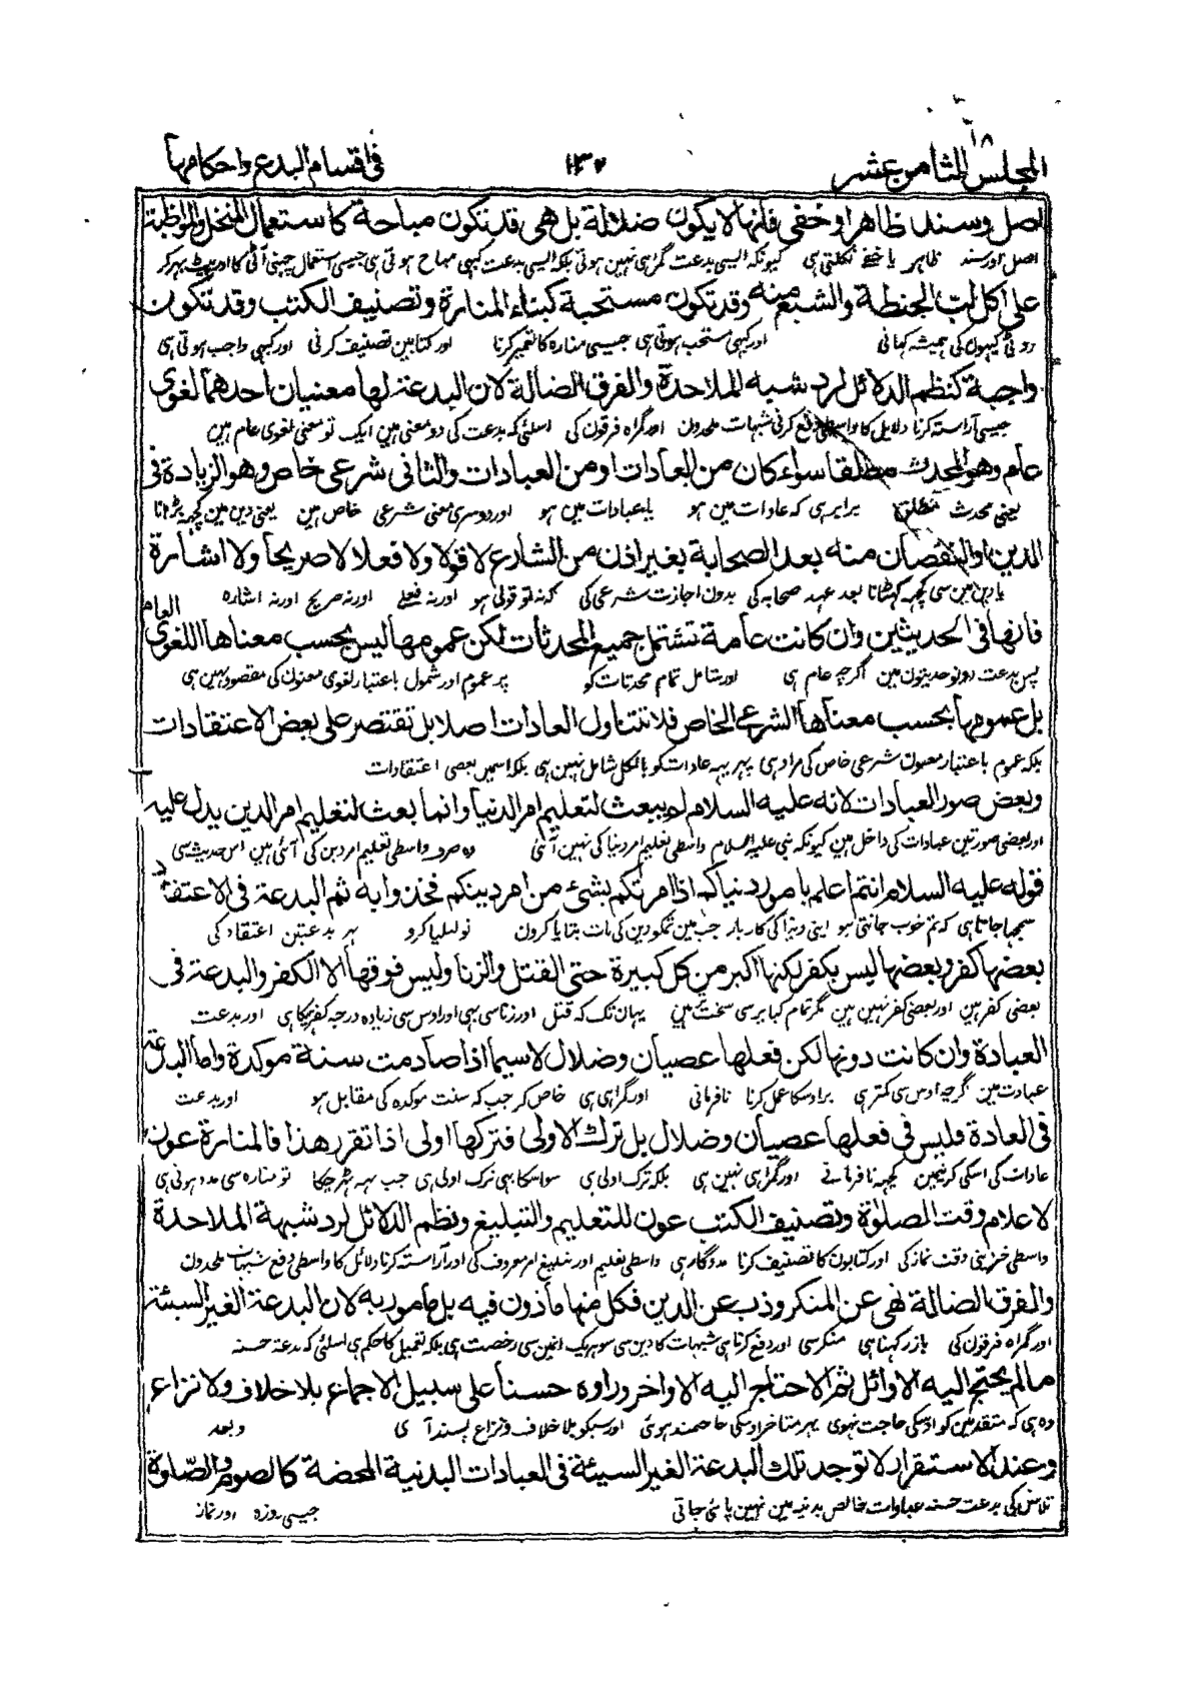 المجلس الثامن عشر ۱۸
۱۳۲
فى اقسام البدع واحكامها
اصل وسند ظاهر او خفى فانها لا يكون ضلالة بل هى قد تكون مباحة كاستعمال المنخل والمواظبة
اصل اور سند ظاہر یا خفی نکلتی ہی کیونکہ الیسی بدعت گمراہی نہین ہوتی بلکہ الیسی بدعت کبہی مباح ہوتی ہی جیسی استعمال چہنی آٹی کا اور پیٹ بہر کر
على اكل لب الحنطة والشبع منه وقد تكون مستحبة كبناء المنارة وتصنيف الكتب وقد تكون
روٹی گیہوں کی ہمیشہ کہانی اور کبہی مستحب ہوتی ہی جیسی منارہ کا تعمیر کرنا اور کتابین تصنیف کرنی اور کبہی واجب ہوتی ہی
واجبة كنظم الدلائل لرد شبه الملاحدة والفرق الضالة لان البدعة لها معنيان احدهما لغوى
جیسی آراستہ کرنا دلایل کا واسطی دفع کرنی شبہات ملحدون اور گمراہ فرقون کی اسلئی کہ بدعت کی دو معنی ہین ایک تو معنی لغوی عام ہین
عام وهو المحدث مطلقا سواء كان من العادات او من العبادات والثانى شرعى خاص وهو الزيادة فى
یعنی محدث مطلق برابر ہی کہ عادات مین ہو یا عبادات مین ہو اور دوسری معنی شرعی خاص ہین یعنی دین مین کچہہ بڑہانا
الدين او النقصان منه بعد الصحابة بغير اذن من الشارع لا قولا ولا فعلا لا صريحا ولا اشارة
یا دین مین سی کچہہ گہٹانا بعد عہد صحابہ کی بدون اجازت شرعی کی کہ نہ تو قولی ہو اور نہ فعلی اور نہ صریح اور نہ اشارہ
فانها فى الحديثين وان كانت عامة تشتمل جميع المحدثات لكن عمومها ليس بحسب معناها اللغوى العام
پس بدعت دونو حدیثون مین اگرچہ عام ہی اور شامل تمام محدثات کو پر عموم اور شمول باعتبار لغوی معنون کی مقصود نہین ہی
بل عمومها بحسب معناها الشرعى الخاص فلا تتناول العادات اصلا بل تقتصر على بعض الاعتقادات
بلکہ عموم باعتبار معنون شرعی خاص کی مراد ہی پہر یہہ عادات کو بالکل شامل نہین ہی بلکہ اسمین بعضی اعتقادات
وبعض صور العبادات لانه عليه السلام لم يبعث لتعليم امر الدنيا وانما بعث لتعليم امر الدين يدل عليه
اور بعضی صورتین عبادات کی داخل ہین کیونکہ نبی علیہ السلام واسطی تعلیم امر دنیا کی نہین آئی وہ صرف واسطی تعلیم امر دین کی آئی ہین اس حدیث سی
قوله عليه السلام انتم اعلم بامور دنياكم اذا امرتكم بشئ من امر دينكم فخذوا به ثم البدعة فى الاعتقاد
سمجہا جاتا ہی کہ تم خوب جانتی ہو اپنی دنیا کی کاروبار جب مین تمکو دین کی بات بتایا کرون تو لیلیا کرو پہر بدعتین اعتقاد کی
بعضها كفر وبعضها ليس بكفر لكنها اكبر من كل كبيرة حتى القتل والزنا وليس فوقها الا الكفر والبدعة فى
بعضی کفر ہین اور بعضی کفر نہین ہین مگر تمام کبایر سی سخت ہین یہان تک کہ قتل اور زنا سی بہی اور اوس سی زیادہ درجہ کفر کا ہی اور بدعت
العبادة وان كانت دونها لكن فعلها عصيان وضلال لاسيما اذا صادمت سنة موكدة واما البدعة
عبادت مین گرچہ اوس سی کمتر ہی پر اوسکا عمل کرنا نافرمانی اور گمراہی ہی خاص کر جب کہ سنت موکدہ کی مقابل ہو اور بدعت
فى العادة فليس فى فعلها عصيان وضلال بل ترك الاولى فتركها اولى اذا تقرر هذا فالمنارة عون
عادات کی اسکی کرنیمین کچہہ نافرمانی اور گمراہی نہین ہی بلکہ ترک اولی ہی سو اسکا بہی ترک اولی ہی جب یہہ ٹہر چکا تو منارہ سی مدد ہوتی ہی
لاعلام وقت الصلوة وتصنيف الكتب عون للتعليم والتبليغ ونظم الدلائل لرد شبهة الملاحدة
واسطی خبر دینی وقت نماز کی اور کتابون کا تصنیف کرنا مددگار ہی واسطی تعلیم اور تبلیغ امر معروف کی اور آراستہ کرنا دلائل کا واسطی دفع شبہات ملحدون
والفرق الضالة نهى عن المنكر وذب عن الدين فكل منها ماذون فيه بل مامور به لان البدعة الغير السيئة
اور گمراہ فرقون کی باز رکہنا ہی منکر سی اور دفع کرنا ہی شبہات کا دین سی سو ہر یک انمین سی رخصت ہی بلکہ تعمیل کا حکم ہی اسلئی کہ بدعۃ حسنہ
ما لم يحتج اليه الاوائل ثم الاحتاج اليه الاواخر وراوه حسنا على سبيل الاجماع بلا خلاف ولا نزاع
وہ ہی کہ متقدمین کو اوسکی حاجت نہوی پہر متاخر اوسکی حاجتمند ہوئی اور سبکو بلا خلاف ونزاع پسند آئی وبعد
وعند الاستقرار لا توجد تلك البدعة الغير السيئة فى العبادات البدنية المحضة كالصوم والصلوة
تلاش کی بدعت حسنہ عبادات خالص بدنیہ مین نہین پائی جاتی جیسی روزہ اور نماز